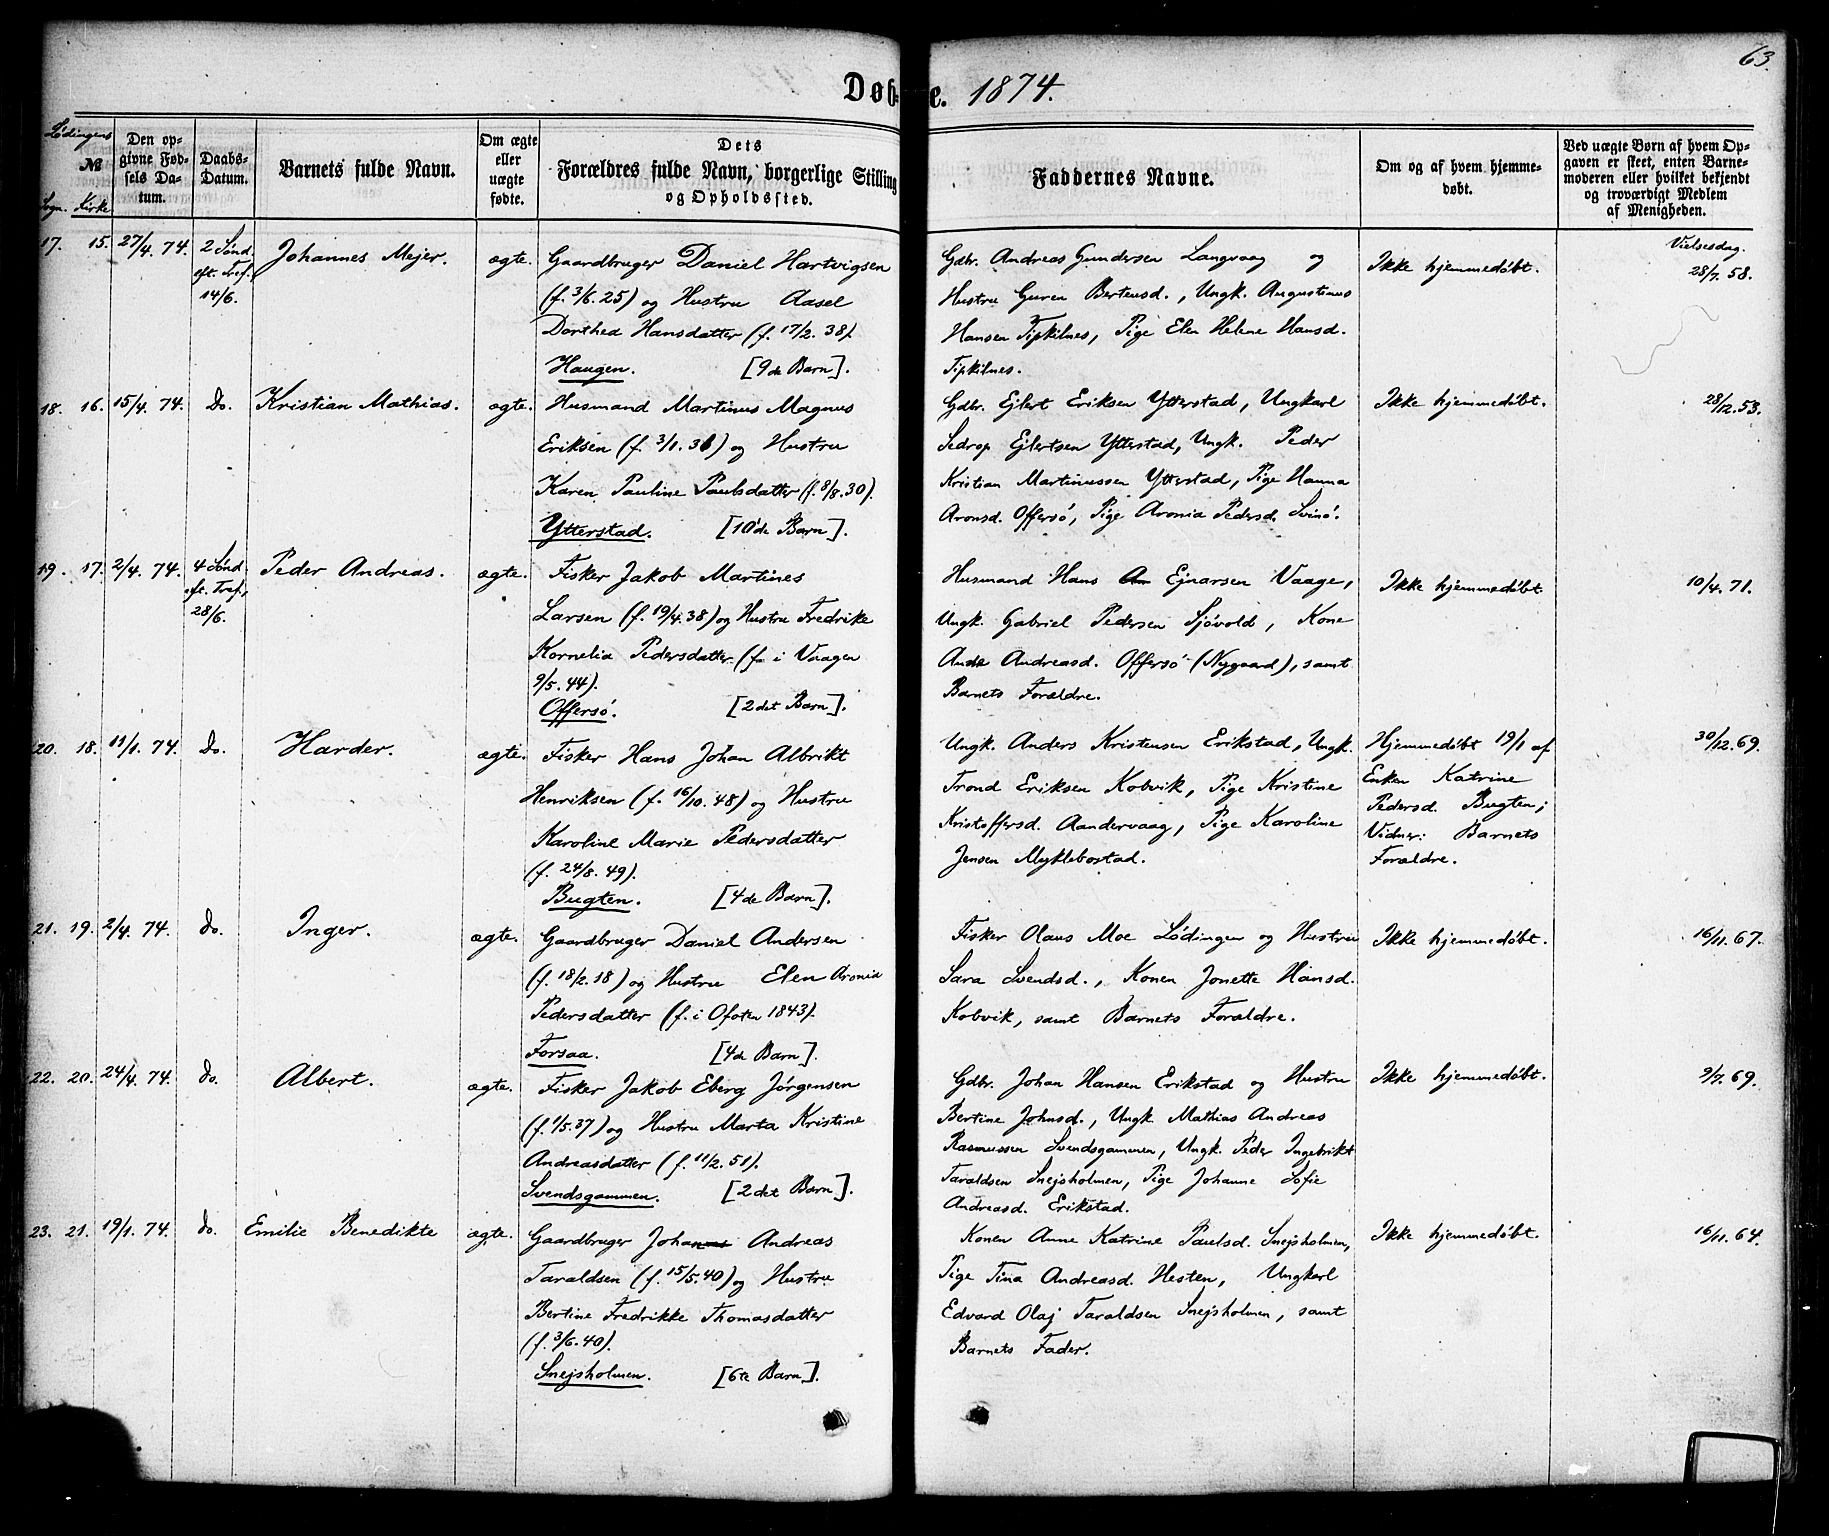 63.
Døbte. 1874.
Lødingens
№
Sogn. Kirke
Den op-
givne Fød-
sels Da-
tum.
Daabs-
Datum.
Barnets fulde Navn.
Om ægte
eller
uægte
fødte.
Dets
Forældres fulde Navn, borgerlige Stilling
og Opholdssted.
Faddernes Navne.
Om og af hvem hjemme-
døbt.
Ved uægte Børn af hvem Op-
gaven er skeet, enten Barne-
moderen eller hvilket bekjendt
og troværdigt Medlem
af Menigheden.
17. 15. 27/4. 74. 2 Sønd.
eft. Tref.
14/6.
Johannes Mejer.
ægte.
Gaardbruger Daniel Hartvigsen
(f. 3/6. 25) og Hustru Aasel
Dorthea Hansdatter (f. 17/2. 38).
Haugen. [9de Barn].
Gdbr. Andreas Gundersen Langvaag og
Hustru Guren Berteusd., Ungk. Augustinus
Hansen Tipkilnes, Pige Elen Helene Hansd.
Tipkilnes.
Ikke hjemmedøbt.
Vielsesdag.
28/7. 58.
18. 16. 15/4. 74. Do.
Kristian Mathias.
ægte.
Husmand Martinus Magnus
Eriksen (f. 3/1. 31) og Hustru
Karen Pauline Paulsdatter (f. 8/8. 30).
Ytterstad. [10de Barn].
Gdbr. Ejlert Eriksen Ytterstad, Ungkarl
Sedrop Ejlertsen Ytterstad, Ungk. Peder
Kristian Martinussen Ytterstad, Pige Hanna
Aronsd. Offersø, Pige Aronia Pedersd. Svinø.
Ikke hjemmedøbt.
28/12. 53.
19. 17. 2/4. 74. 4 Sønd.
eft. Tref.
28/6.
Peder Andreas.
ægte.
Fisker Jakob Martines
Larsen (f. 19/4. 38) og Hustru Fredrike
Kornelia Pedersdatter (f. i Vaagen
9/5. 44).
Offersø. [2det Barn].
Husmand Hans An Ejnarsen Vaage,
Ungk. Gabriel Pedersen Sjøvold, Kone
Ande Andreasd. Offersø (Nygaard), samt
Barnets Forældre.
Ikke hjemmedøbt.
10/4. 71.
20. 18. 11/1. 74. Do.
Harder.
ægte.
Fisker Hans Johan Albrikt
Henriksen (f. 16/10. 48) og Hustru
Karoline Marie Pedersdatter
(f. 24/8. 49).
Bugten. [4de Barn].
Ungk. Anders Kristensen Erikstad, Ungk.
Trond Eriksen Kobvik, Pige Kristine
Kristoffersd. Aandervaag, Pige Karoline
Jensen Myklebostad.
Hjemmedøbt 19/1 af
Enken Katrine
Pedersd. Bugten;
Vidner: Barnets
Forældre.
30/12. 69.
21. 19. 2/4. 74. do.
Inger.
ægte.
Gaardbruger Daniel Andersen
(f. 18/2. 18) og Hustru Elen Aronia
Pedersdatter (f. i Ofoten 1843).
Forsaa. [4de Barn].
Fisker Olaus Moe Lødingen og Hustru
Sara Svendsd., Konen Jonette Hansd.
Kobvik, samt Barnets Forældre.
Ikke hjemmedøbt.
16/11. 67.
22. 20. 24/4. 74. do.
Albert.
ægte.
Fisker Jakob Eberg Jørgensen
(f. 1/5. 37) og Hustru Marta Kristine
Andreasdatter (f. 11/2. 51).
Svendsgammen. [2det Barn].
Gdbr. Johan Hansen Erikstad og Hustru
Bertine Johnsd., Ungk. Mathias Andreas
Rasmussen Svendsgammen, Ungk. Peder Ingebrikt
Taraldsen Snejsholmen, Pige Johanne Sofie
Andreasd. Erikstad.
Ikke hjemmedøbt.
9/7. 69.
23. 21. 19/1. 74. do.
Emilie Benedikte
ægte.
Gaardbruger Johannes Andreas
Taraldsen (f. 15/5. 40) og Hustru
Bertine Fredrikke Thomasdatter
(f. 3/6. 40).
Snejsholmen. [6te Barn].
Konen Anne Katrine Paulsd. Snejsholmen,
Pige Tina Andreasd. Hesten, Ungkarl
Edvard Olaj Taraldsen Snejsholmen, samt
Barnets Fader.
Ikke hjemmedøbt.
16/11. 64.